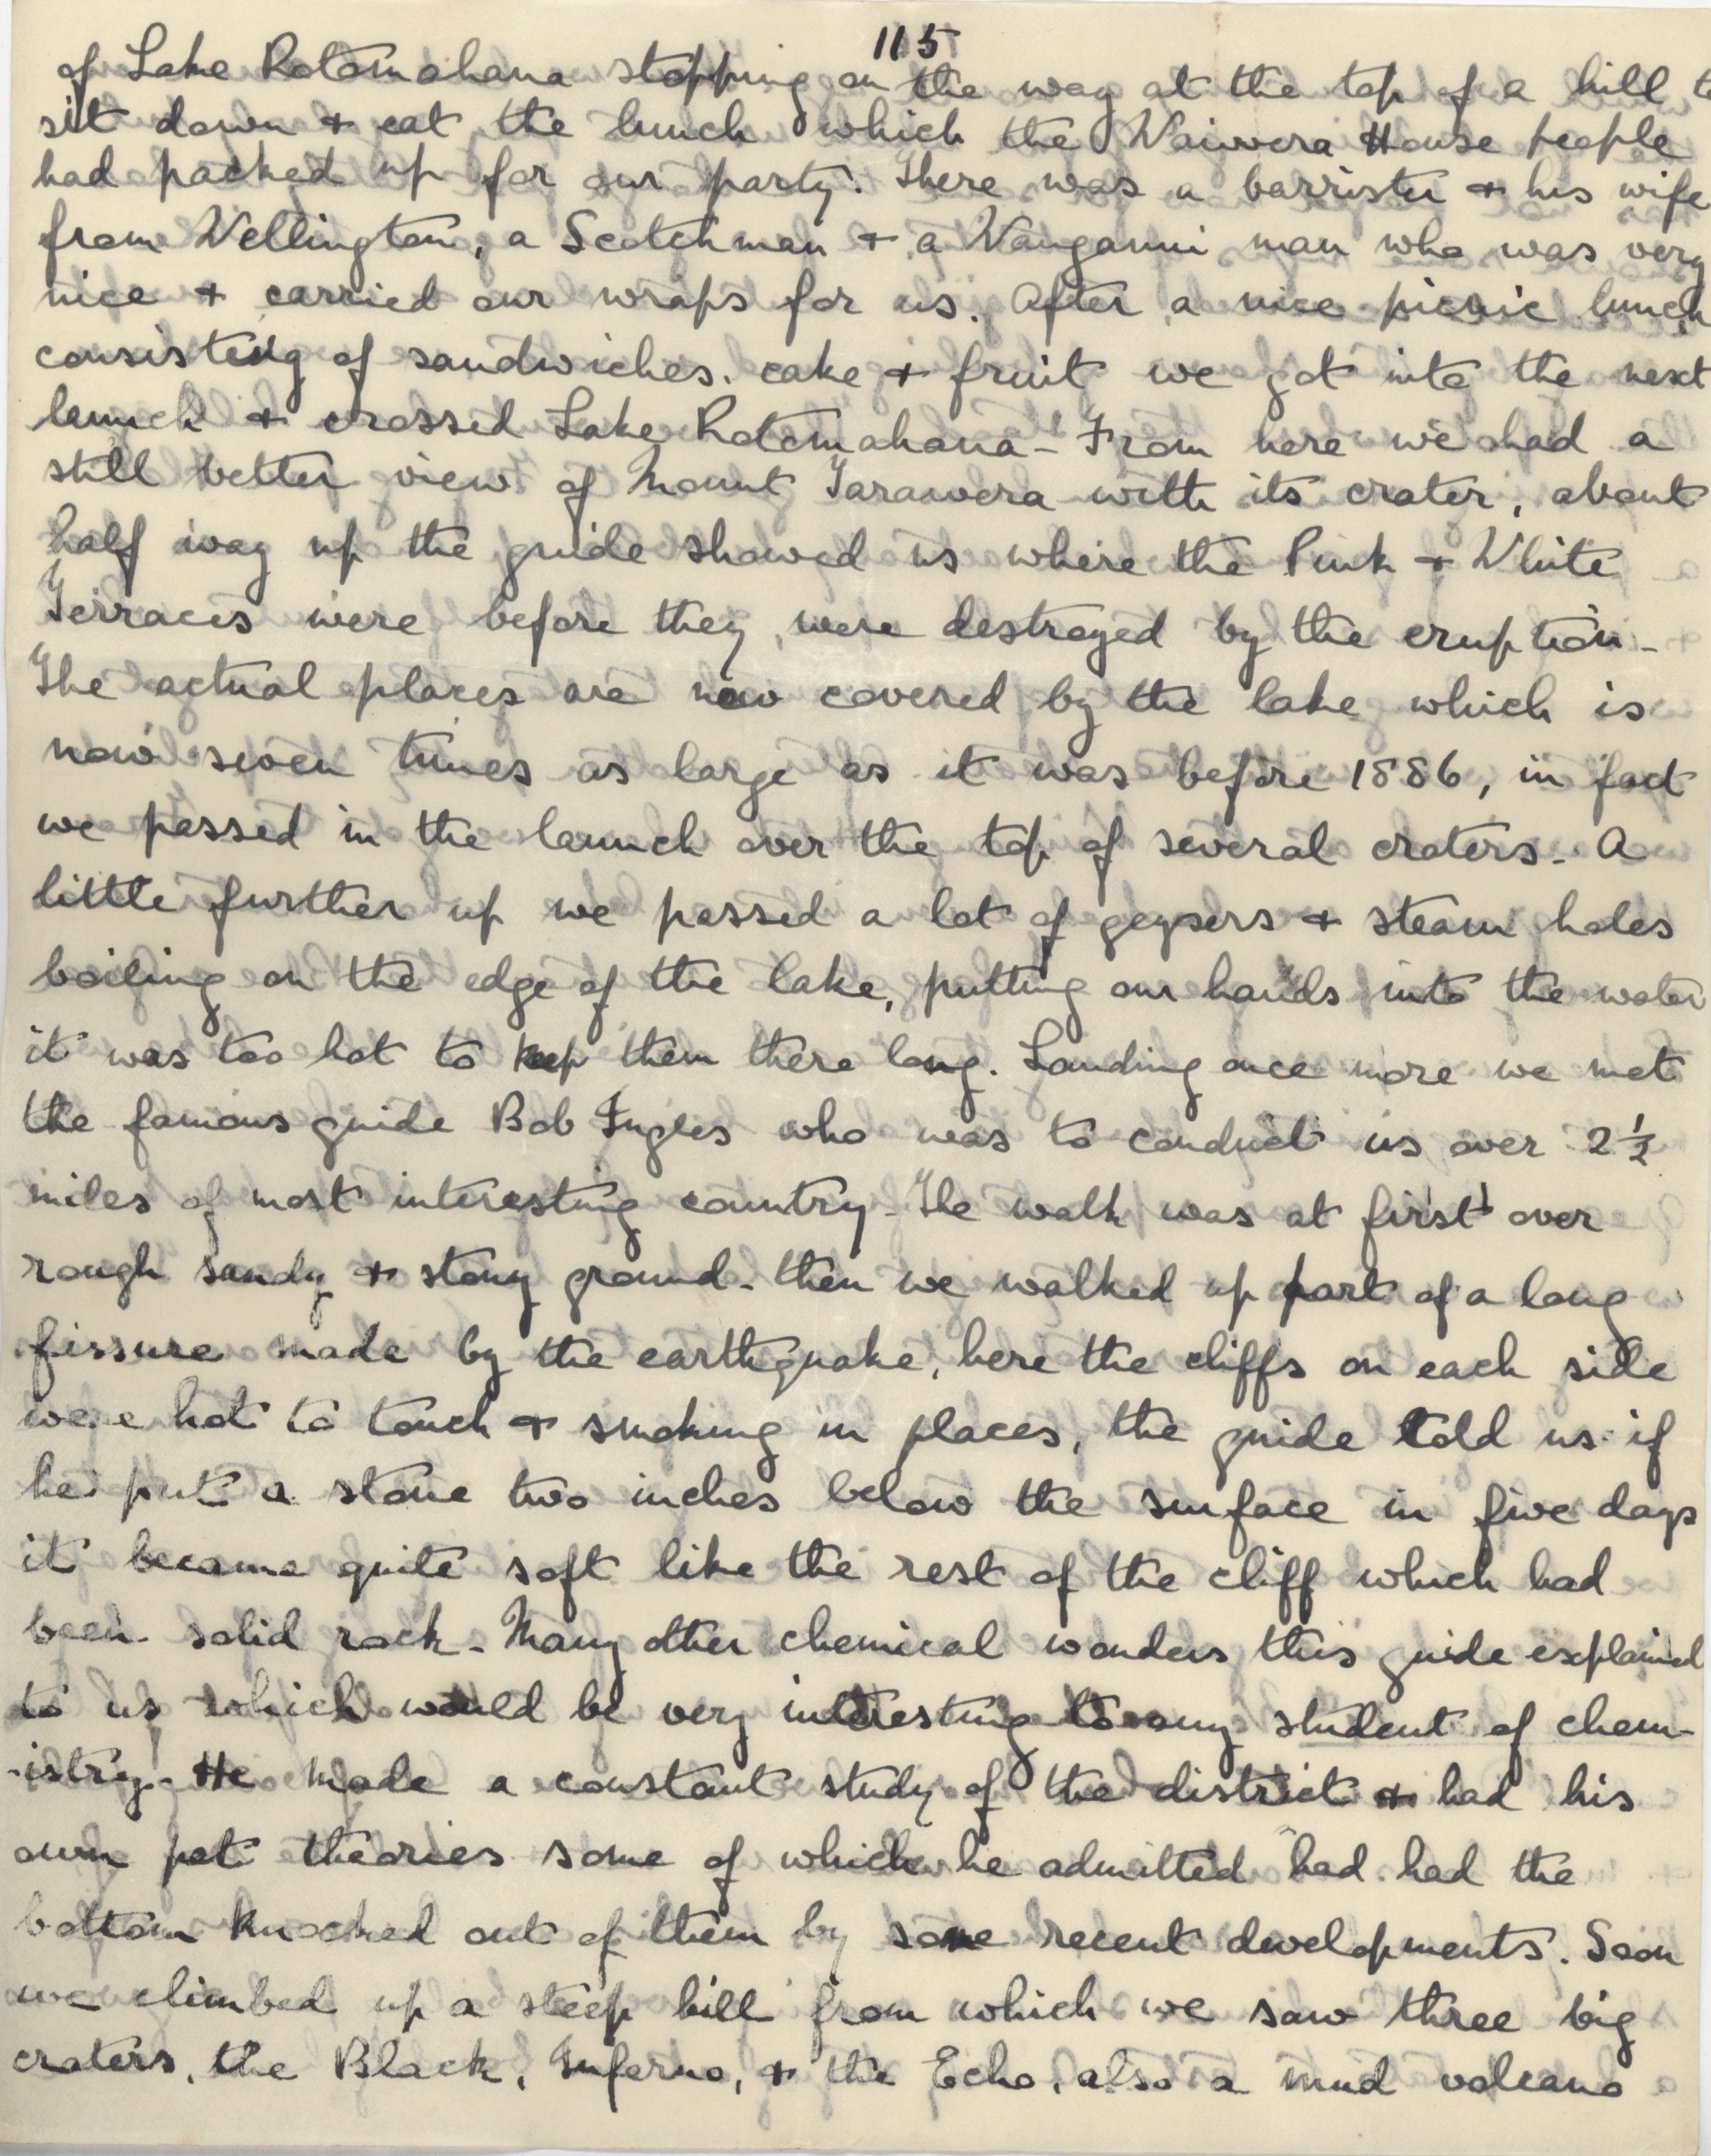 115
of Lake Rotomahana stopping on the way at the top of a hill to
sit down + eat the lunch which the Waiwera House people
had packed up for our party. There was a barrister + his wife
from Wellington, a Scotchman + a Wanganui man who was very
nice + carried our wraps for us. After a nice picnic lunch
consisting of sandwiches. cake + fruit we got into the next
launch + crossed Lake Rotomahana - From here we had a
still better view of Mount Tarawera with its crater, about
half way up the guide showed us where the Pink + White
Terraces were before they were destroyed by the eruption -
The actual places are now covered by the lake which is
now seven times as large as it was before 1886, in fact
we passed in the launch over the top of several craters - A
little further up we passed a lot of geysers + steam holes
boiling on the edge of the lake, putting our hands into the water
it was too hot to keep them there long. Landing once more we met
the famous guide Bob Ingles who was to conduct us over 2½
miles of most interesting country - The walk was at first over
rough sandy + stony ground - then we walked up part of a long
fissure made by the earthquake, here the cliffs on each side
were hot to touch + smoking in places, the guide told us if
he put a stone two inches below the surface in five days
it became quite soft like the rest of the cliff which had
been solid rock - Many other chemical wonders this guide explained
to us which would be very interesting to any student of chem-
-istry - He made a constant study of the district + had his
own pet theories some of which he admitted had had the
bottom knocked out of them by some recent developments. Soon
we climbed up a steep hill from which we saw three big
craters, the Black, Inferno, + the Echo, also a mud volcano